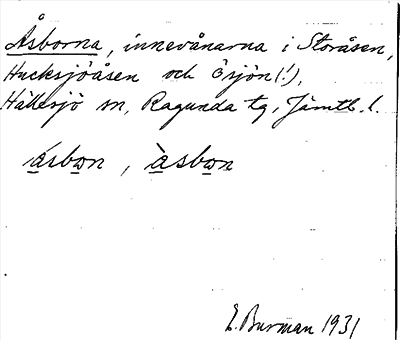 Åsborna, innevånarna i Storåsen,
Hucksjöåsen och Ösjön(!),
Hällesjö sn, Ragunda tg, Jämtl. l.
ásbon, àsbon
E. Burman 1931